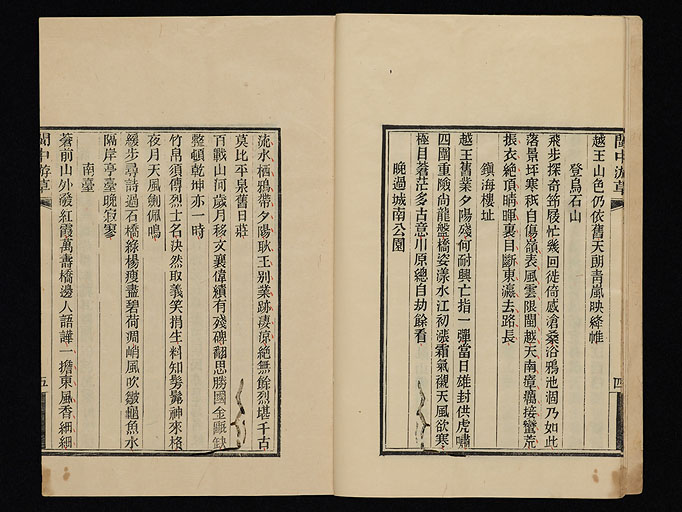 閩中游草
越王山色仍依舊天朗青嵐映絳帷
登烏石山
飛步探奇筇屐忙幾回徙倚感滄桑浴鴉池涸乃如此
落景坪寒秖自傷嶺表風雲限閩越天南瘴癘接蠻荒
振衣絶頂晴暉裏目斷東瀛去路長
鎮海樓址
越王舊業夕陽殘何耐興亡指一彈當日雄封供虎嘯
四圍重險尙龍盤橋姿漾水江初漲霜氣襯天風欲寒
極目蒼茫多古意川原總自劫餘看
晩過城南公園
四
流水栖鴉帶夕陽耿王别業跡淒凉絶無餘烈堪千古
莫比平泉舊日莊
百戰山河歲月移文襄偉績有殘碑翻思勝國金甌缺
整頓乾坤亦一時
竹帛須傳烈士名決然取義笑捐生料知髣髴神來格
夜月天風劍佩鳴
緩步尋詩過石橋綠楊瘦盡碧荷凋峭風吹皺龜魚水
隔岸亭臺晚寂寥
南臺
蒼前山外發紅霞萬壽橋邊人語譁一擔東風香細細
閩中游草
五